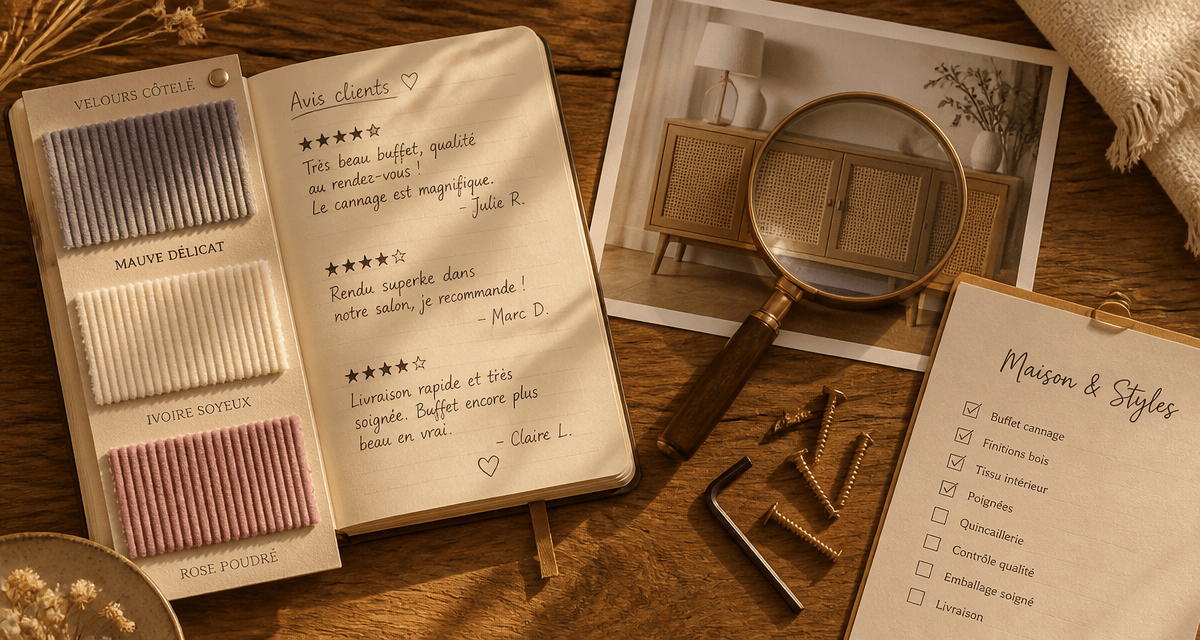 VELOURS CÔTELÉ
MAUVE DÉLICAT
IVOIRE SOYEUX
ROSE POUDRÉ
Avis clients ♡
★★★★☆
Très beau buffet, qualité
au rendez-vous !
Le cannage est magnifique.
– Julie R.
★★★★☆
Rendu superke dans
notre salon, je recommande !
– Marc D.
★★★★☆
Livraison rapide et très
soignée. Buffet encore plus
beau en vrai.
– Claire L.
♡
Maison & Styles
☑ Buffet cannage
☑ Finitions bois
☑ Tissu intérieur
☑ Poignées
☐ Quincaillerie
☐ Contrôle qualité
☐ Emballage soigné
☐ Livraison